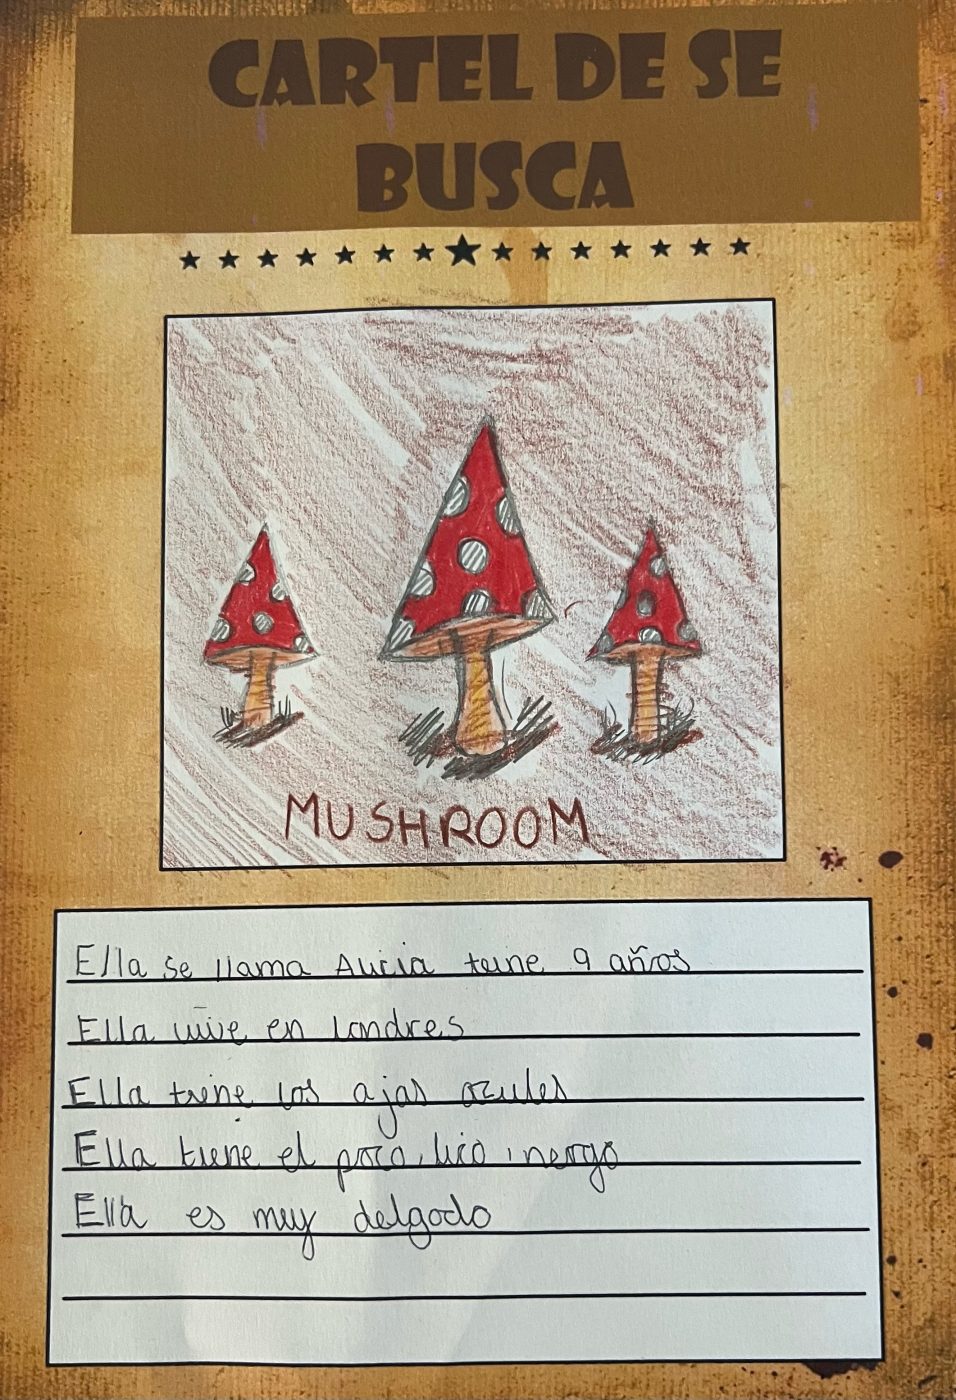 CARTEL DE SE
BUSCA
MUSHROOM
Ella se llama Alicia teine 9 años
Ella vive en londres
Ella teine los ojos azules
Ella tiene el poco, lico, i nergo
Ella es muy delgado